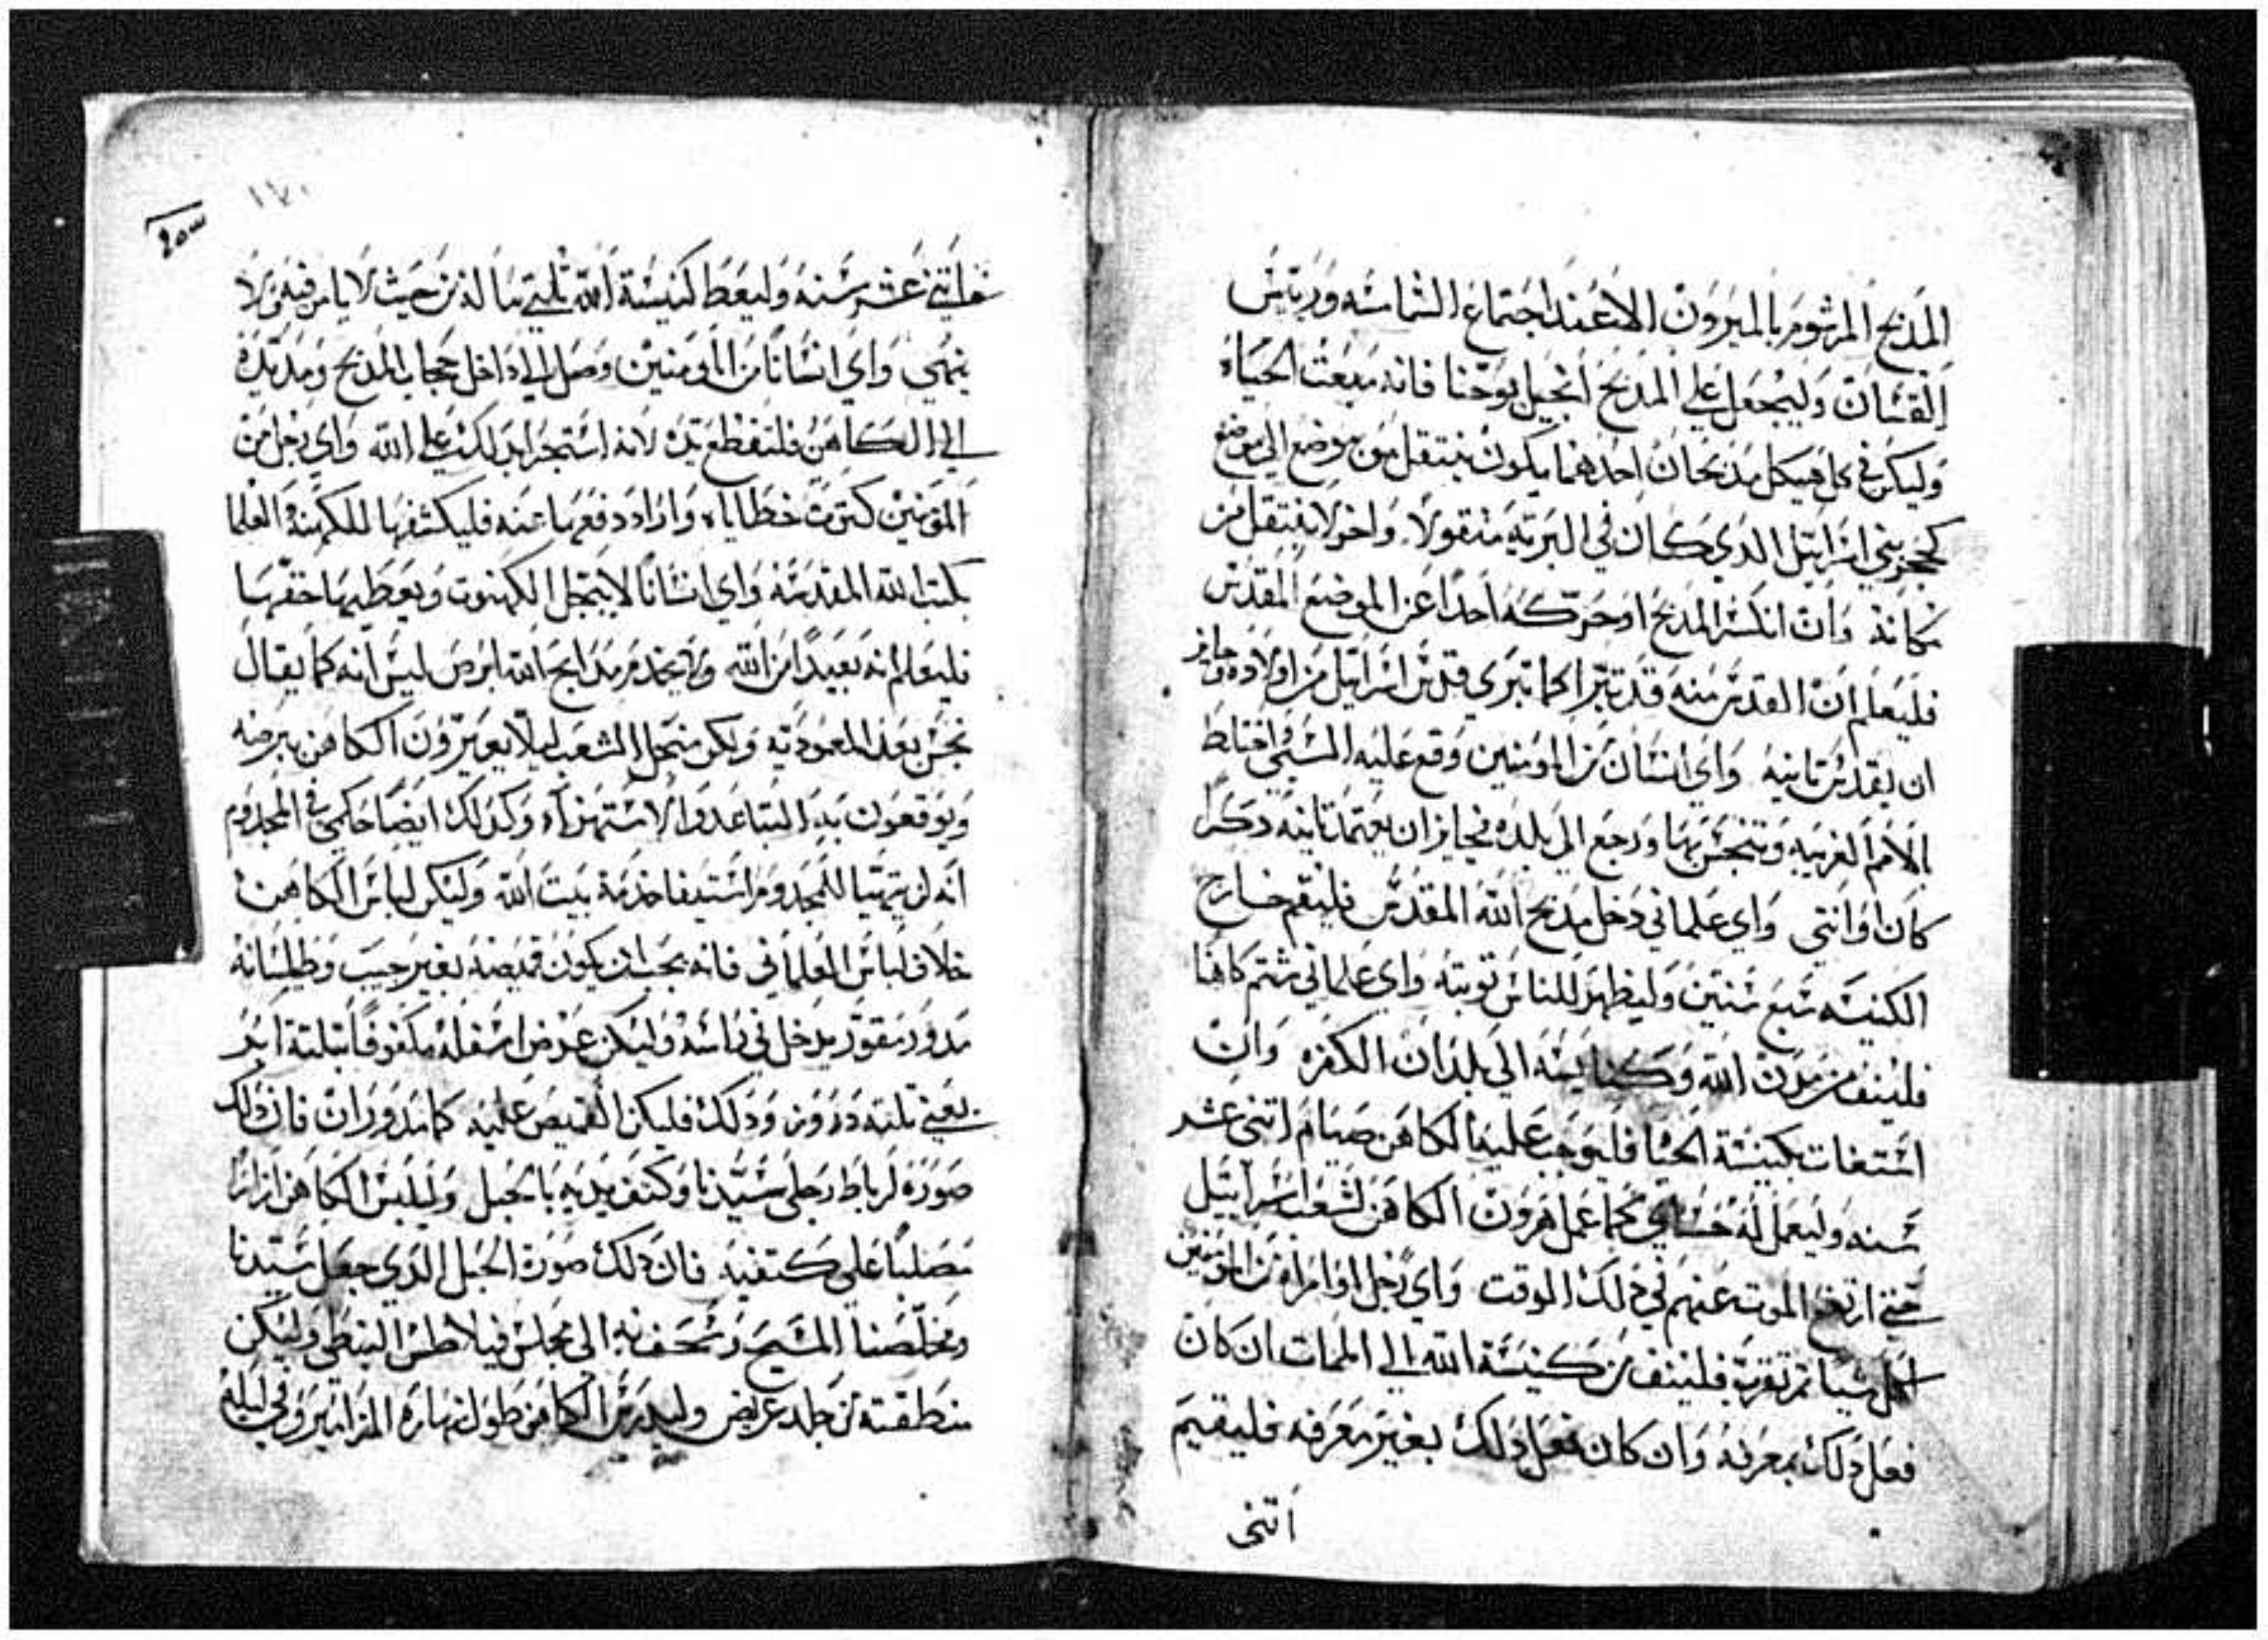 المذبح المرشوم بالميرون الا عند اجتماع الشمامسه ورييس
القسان وليجعل علي المذبح انجيل يوحنا فانه مبعت الحياه
وليكن في كل هيكل مذبحان احدهما يكون ينتقل من موضع الي موضع
كحجر بني اسراييل الذي كان في البريه منقولا واخر لا ينتقل من
مكانه وان انكسر المذبح او حركه احدا عن الموضع المقدس
فليعلم ان القدس منه قد تبرا كما تبري قدس اسراييل من اولاده وجايز
ان يقدس تانيه واي انسان من المومنين وقع عليه السبي واختلط
بالامم الغريبه وتنجس بها ورجع الي بلده فجايز ان يعتمد تانيه دكرا
كان او انتي واي علماني دخل مذبح الله المقدس فليقم خارج
الكنيسه سبع سنين وليظهر للناس توبته واي علماني شتم كاهنا
فلينف من مدن الله وكنايسه الي بلدان الكفره وان
استغات بكنيسة الحيا فليوجب عليه الكاهن صيام اتني عشر
سنه وليعمل له كما عمل هرون الكاهن لشعب اسراييل
حتي ارتفع الموت عنهم في دلك الوقت واي رجل او امراه من المومنين
اكل شيا تم تقرب فلينف من كنيسة الله الي الممات ان كان
فعل دلك بمعرفه وان كان فعل دلك بغير معرفه فليقيم
اتني
١٧٠
اتني عشر سنه وليعط لكنيسة الله تلتي ماله من حيث لا يامر فيه ولا
ينهي واي انسانا من المومنين وصل الي داخل حجاب المدبح ومد يده
الي الكاهن فلتقطع يده لانه استجرا بدلك علي الله واي رجل من
المومنين كترت خطاياه واراد دفعها عنه فليكشفها للكهنه العلما
بكتب الله المقدسه واي انسانا لا يبجل الكهنوت ويعطيها حقها
فليعلم انه بعيدا من الله ولا يخدم مدابح الله ابرص ليس انه كما يقال
نجس بعد المعموديه ولكن منجل الشعب ليلا يعيرون الكاهن ببرصه
ويوقعون به التباعد والاستهزاه وكدلك ايضا حكمي في المجدوم
انه لن يتهيا للمجدوم استيفا خدمة بيت الله وليكن لباس الكاهن
خلاف لباس العلماني فانه يجب ان يكون قميصه بغير جيب وطيلسانه
مدور مقور يدخل في راسه وليكن عرض اسفله مكفوفا بتلتة ايد
يعني تلته دروز ودلك فليكن القميص عليه كما يدوران فان دلك
صورة لرباط رجلي سيدنا وكتف يديه بالحبل وليلبس الكاهن ازارا
مصلبا علي كتفيه فان دلك صورة الحبل الدي جعل سيدنا
ومخلصنا المسيح وسحف به الي مجلس فيلاطس البنطي وليكن
منطقته من جلد عريض وليدرس الكاهن طول نهاره المزامير وفي ليله